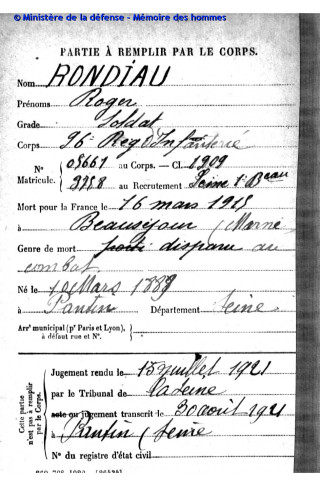 © Ministère de la défense - Mémoire des hommes
PARTIE À REMPLIR PAR LE CORPS.
Nom RONDIAU
Prénoms Roger
Grade Soldat
Corps 96e Reg d'Infanterie
N° 05661 au Corps. — Cl. 1909
Matricule. au Recrutement Seine 1er Beau
Mort pour la France le 16 mars 1915
à Beauséjour (Marne)
Genre de mort disparu au
combat
Né le 10 Mars 1889
à Pantin Département Seine
Arr' municipal (p' Paris et Lyon),
à défaut rue et N°.
Cette partie
n'est pas à remplir
par le Corps.
Jugement rendu le 15 juillet 1921
par le Tribunal de la Seine
acte ou jugement transcrit le 30 août 1921
à Pantin (Seine
N° du registre d'état civil